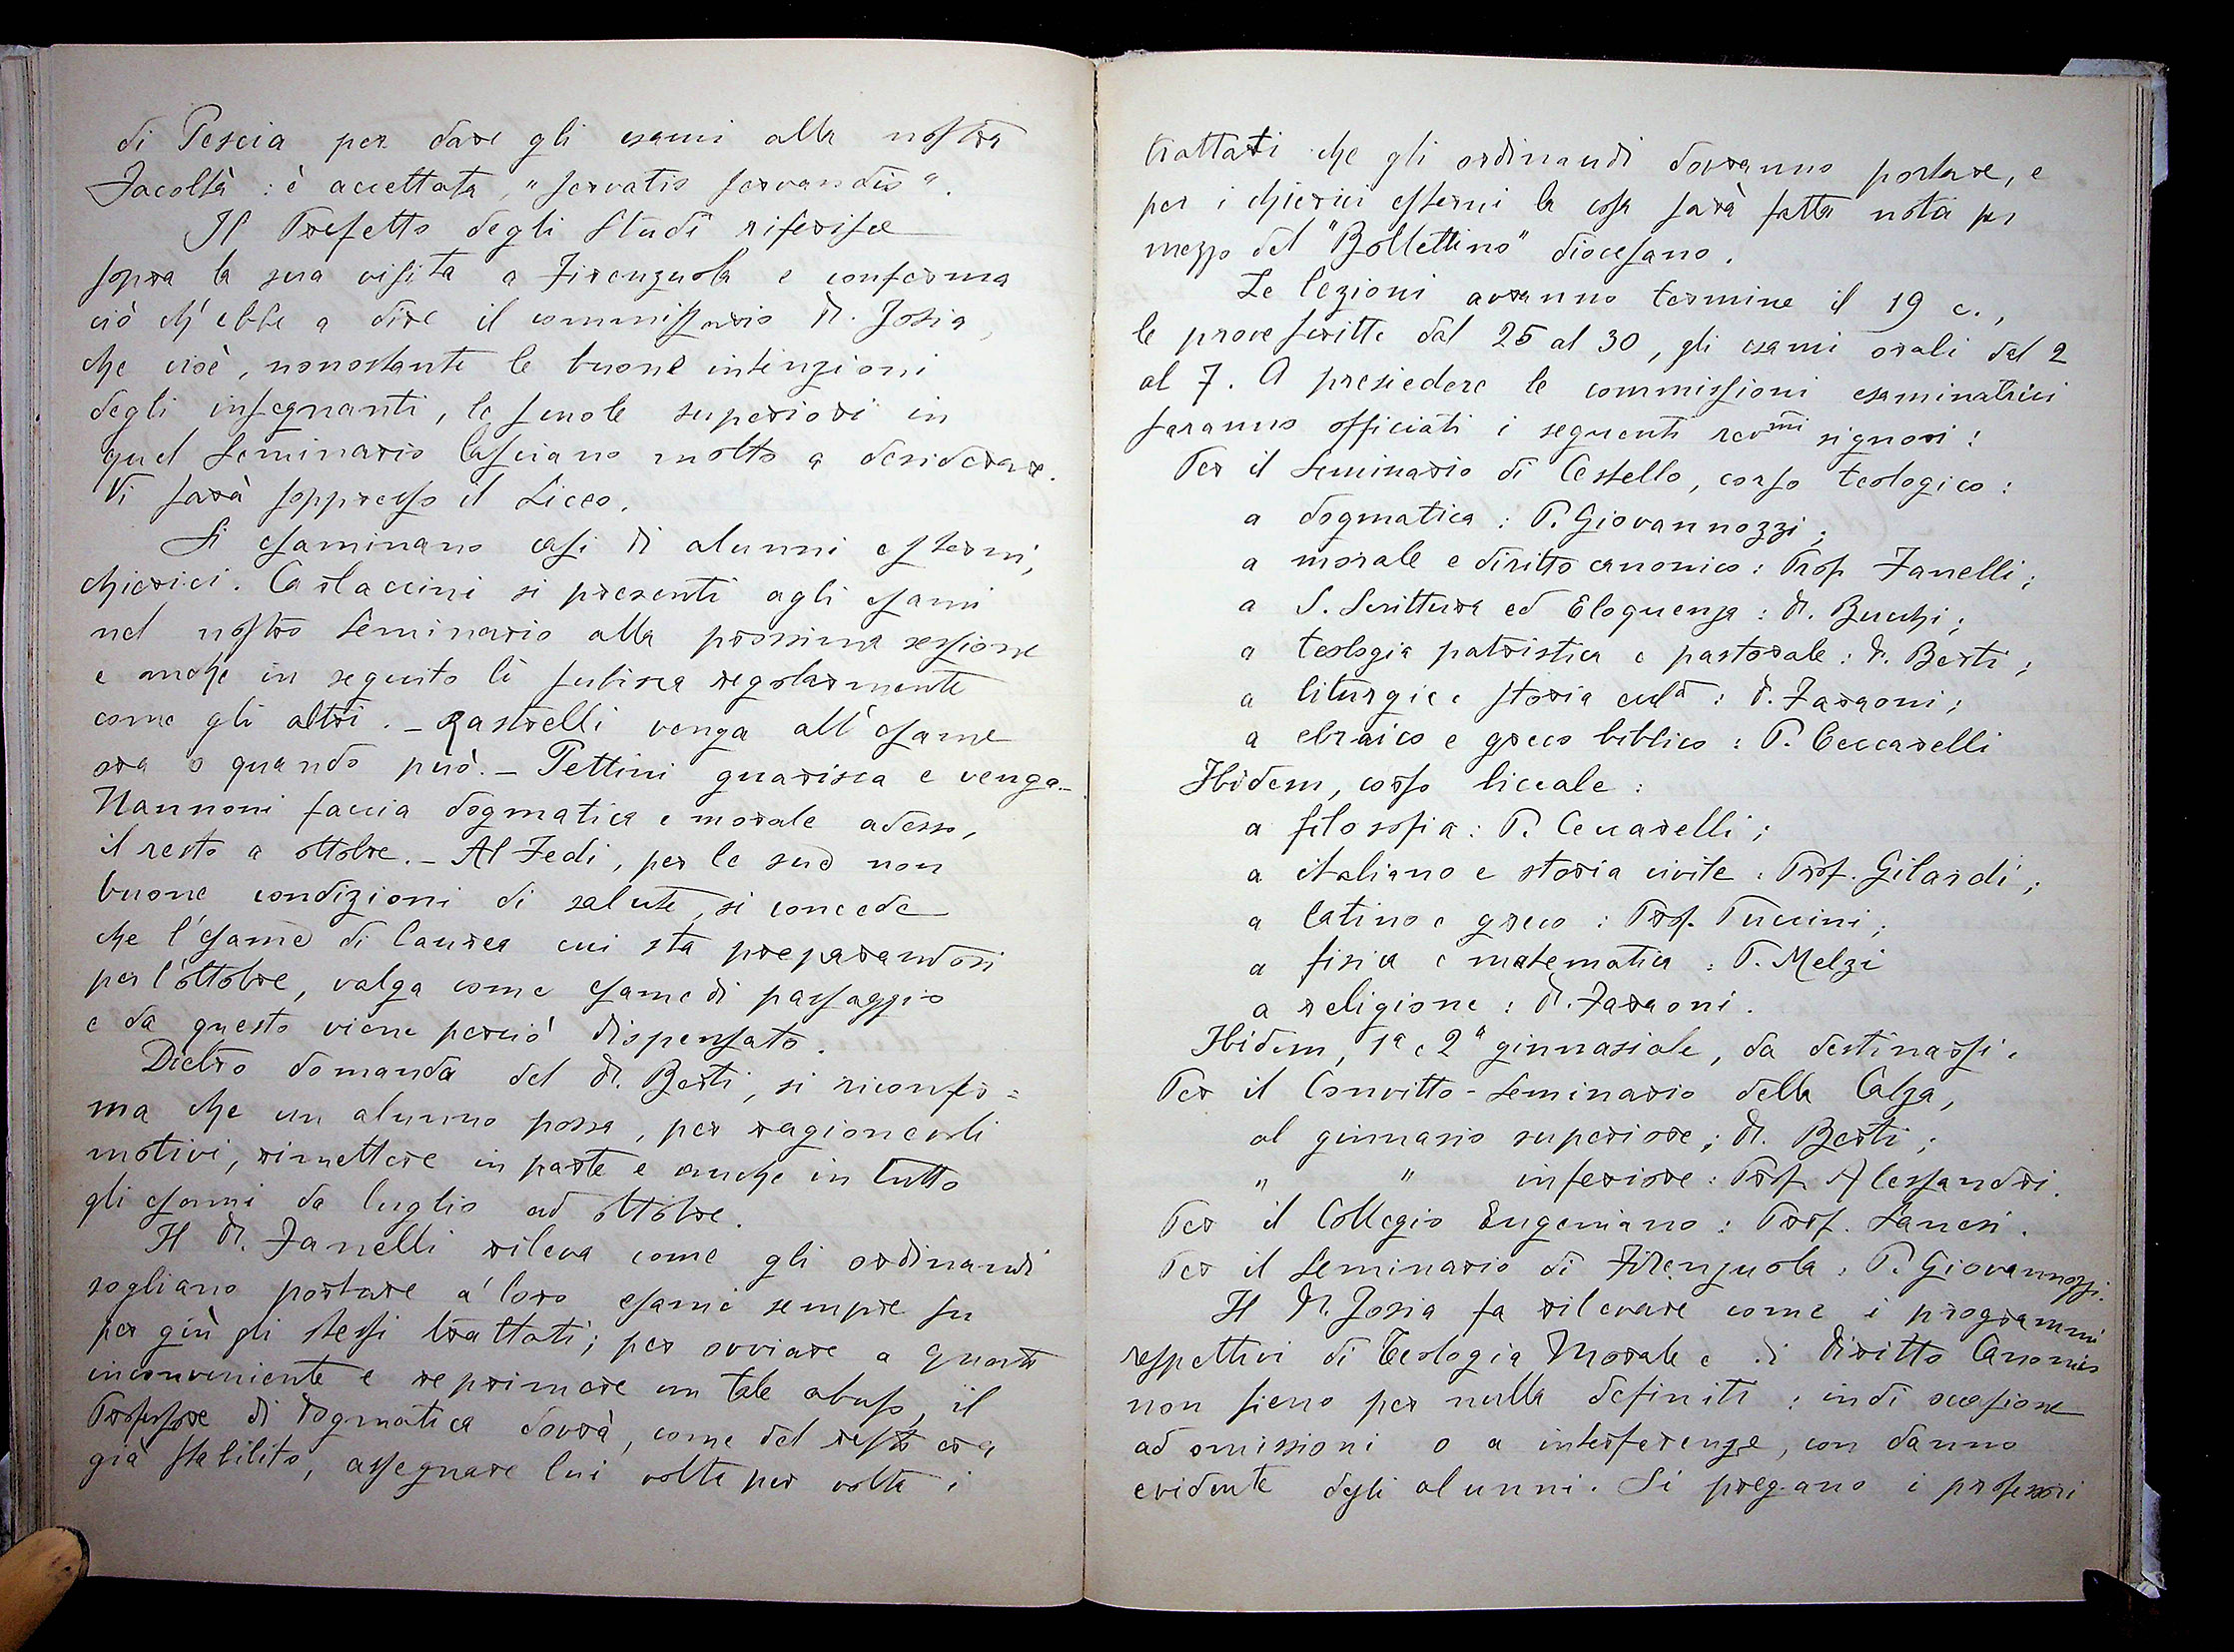 di Pescia per dare gli esami alla nostra
Facoltà: è accettata, "servatis servandis".
Il Prefetto degli Studi riferisce
sopra la sua visita a Firenzuola e conferma
ciò ch'ebbe a dire il commissario D. Josia,
che cioè, nonostante le buone intenzioni
degli insegnanti, le scuole superiori in
quel Seminario lasciano molto a desiderare.
Vi sarà soppresso il Liceo.
Si esaminano casi di alunni esterni,
chierici. Carlaccini si presenti agli esami
nel nostro Seminario alla prossima sessione
e anche in seguito li subisca regolarmente
come gli altri. - Rastrelli venga all'esame
ora o quando può. - Pettini guarisca e venga. -
Nannoni faccia dogmatica e morale adesso,
il resto a ottobre. - Al Fedi, per le sue non
buone condizioni di salute, si concede
che l'esame di laurea cui sta preparandosi
per l'ottobre, valga come esame di passaggio
e da questo viene perciò dispensato.
Dietro domanda del D. Berti, si riconfer=
ma che un alunno possa, per ragionevoli
motivi, rimettere in parte e anche in tutto
gli esami da luglio ad ottobre.
Il D. Fanelli rileva come gli ordinandi
sogliano portare a' loro esami sempre su
per giù gli stessi trattati; per ovviare a questo
inconveniente e reprimere un tale abuso, il
Professore di Dogmatica dovrà, come del resto era
già stabilito, assegnare lui volta per volta i
trattati che gli ordinandi dovranno portare, e
per i chierici esterni la cosa sarà fatta nota per
mezzo del "Bollettino" diocesano.
Le lezioni avranno termine il 19 c.,
le prove scritte dal 25 al 30, gli esami orali dal 2
al 7. A presiedere le commissioni esaminatrici
saranno officiati i seguenti rev.mi signori:
Per il Seminario di Cestello, corso teologico:
a dogmatica: P. Giovannozzi;
a morale e diritto canonico: Prof. Fanelli;
a S. Scrittura ed Eloquenza: D. Bucchi;
a teologia patristica e pastorale: D. Berti;
a liturgia e storia eccla: D. Faraoni;
a ebraico e greco biblico: P. Ceccarelli
Ibidem, corso liceale:
a filosofia: P. Ceccarelli;
a italiano e storia civile: Prof. Gilardi;
a latino e greco: Prof. Puccini;
a fisica e matematica: P. Melzi
a religione: D. Faraoni.
Ibidem, 1a e 2a ginnasiale, da destinarsi.
Per il Convitto-Seminario della Calza,
al ginnasio superiore; D. Berti;
" " inferiore: Prof. Alessandri.
Per il Collegio Eugeniano: Prof. Sanesi.
Per il Seminario di Firenzuola: P. Giovannozzi.
Il D. Josia fa rilevare come i programmi
respettivi di Teologia Morale e di Diritto Canonico
non sieno per nulla definiti: indi occasione
ad omissioni o a interferenze, con danno
evidente degli alunni. Si pregano i professori